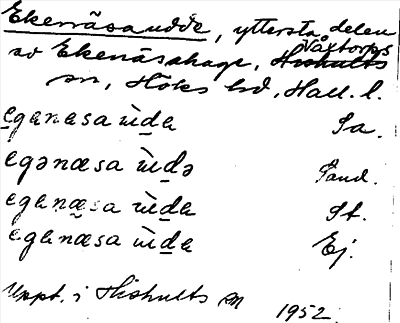 Ekenäsaudde, yttersta delen
av Ekenäsahage, Hishults Våxtorps
sn, Höks hd, Hall. l.
egenasa ùda Sa.
egənæsa ùdə Sand.
egenæsa ùda St.
egenæsa ùda Ej.
Uppt. i Hishults sn
1952.